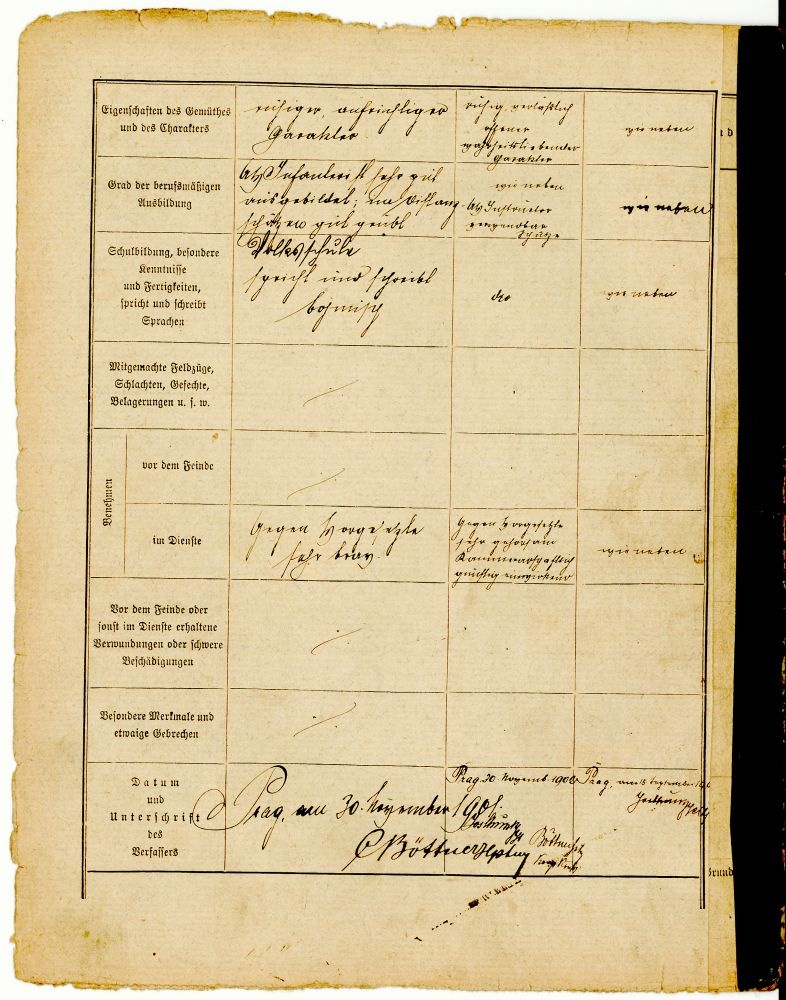 Eigenschaften des Gemüthes
und des Charakters
ruhiger, aufrichtiger
Charakter
ruhig, verläßlich
offener
wahrheitsliebender
Charakter
wie neben
Grad der berufsmäßigen
Ausbildung
Als Infanterist sehr gut
ausgebildet; im Distanz-
schätzen gut geübt
wie neben
Als Instructor
verwendbar
wie neben
Schulbildung, besondere
Kenntnisse
und Fertigkeiten,
spricht und schreibt
Sprachen
Volksschule
spricht und schreibt
böhmisch
dto
wie neben
Mitgemachte Feldzüge,
Schlachten, Gefechte,
Belagerungen u. s. w.
Benehmen
vor dem Feinde
im Dienste
Gegen Vorgesetzte
sehr brav.
Gegen Vorgesetzte
sehr gehorsam
Kammeradschaftlich
günstig einwirkend
wie neben
Vor dem Feinde oder
sonst im Dienste erhaltene
Verwundungen oder schwere
Beschädigungen
Besondere Merkmale und
etwaige Gebrechen
Datum
und
Unterschrift
des
Verfassers
Prag, am 30. November 1901.
Böttner Hptm
Prag 30. Novemb. 1906
Böttner
Prag, am 18 September